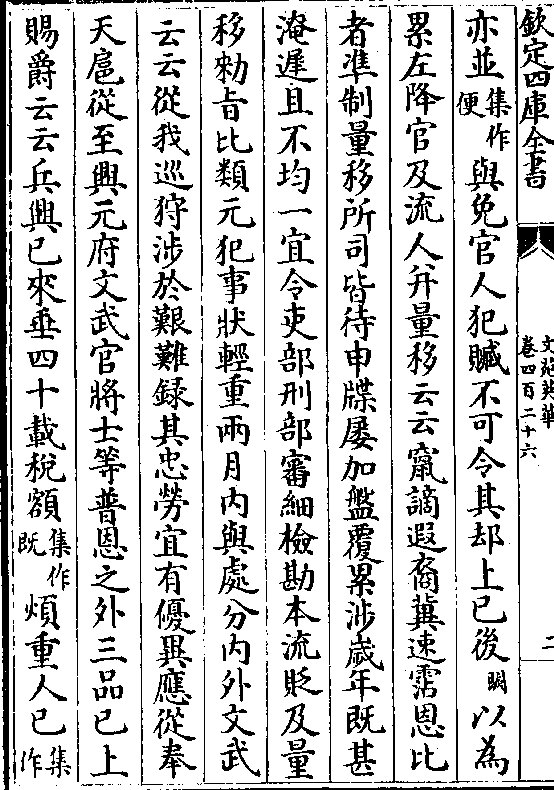 欽定四庫全書
文苑英華
卷四百二十六
二
亦並集作便與免官人犯贓不可令其却上已後闕以為
累左降官及流人并量移云云竄謫遐裔冀速霑恩比
者準制量移所司皆待申牒屢加盤覆累涉歲年既甚
淹遲且不均一宜令吏部刑部審細檢勘本流貶及量
移勅旨比類元犯事狀輕重兩月內與處分內外文武
云云從我巡狩涉於艱難録其忠勞宜有優異應從奉
天扈從至興元府文武官將士等普恩之外三品已上
賜爵云云兵興已來垂四十載稅額集作既煩重人已集作